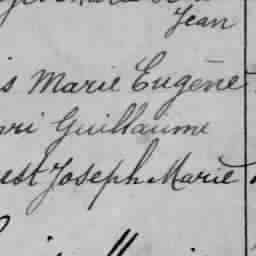 Jean
s Marie Eugène
ri Guillaume
est Joseph Marie